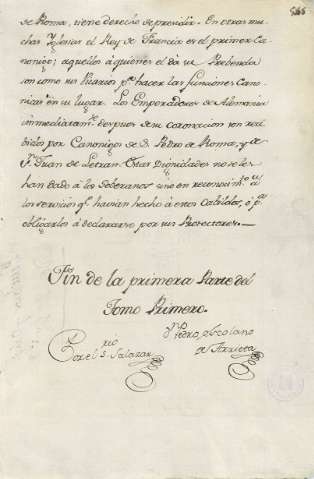 565
de Roma, tiene derecho de presidir. En otras mu-
chas Iglesias el Rey de Francia es el primer Ca-
nonigo; aquellos à quienes el dà su Prebenda
son como sus Vicarios pª hacer las funciones Cano-
nicas en su lugar. Los Emperadores de Alemania
immediatamte despues de su coronacion son reci-
bidos por Canonigos de S. Pedro de Roma, y de
Sn Juan de Letran. Estas Dignidades no se les
han dado à los Soberanos sino en reconocimto à
los servicios qe havian hecho à estos Cabildos, ò pª
obligarlos à declararse por sus Protectores.
Fin de la primera Parte del
Tomo Primero.
Por el S. Salazar
Pedro
de Arrieta